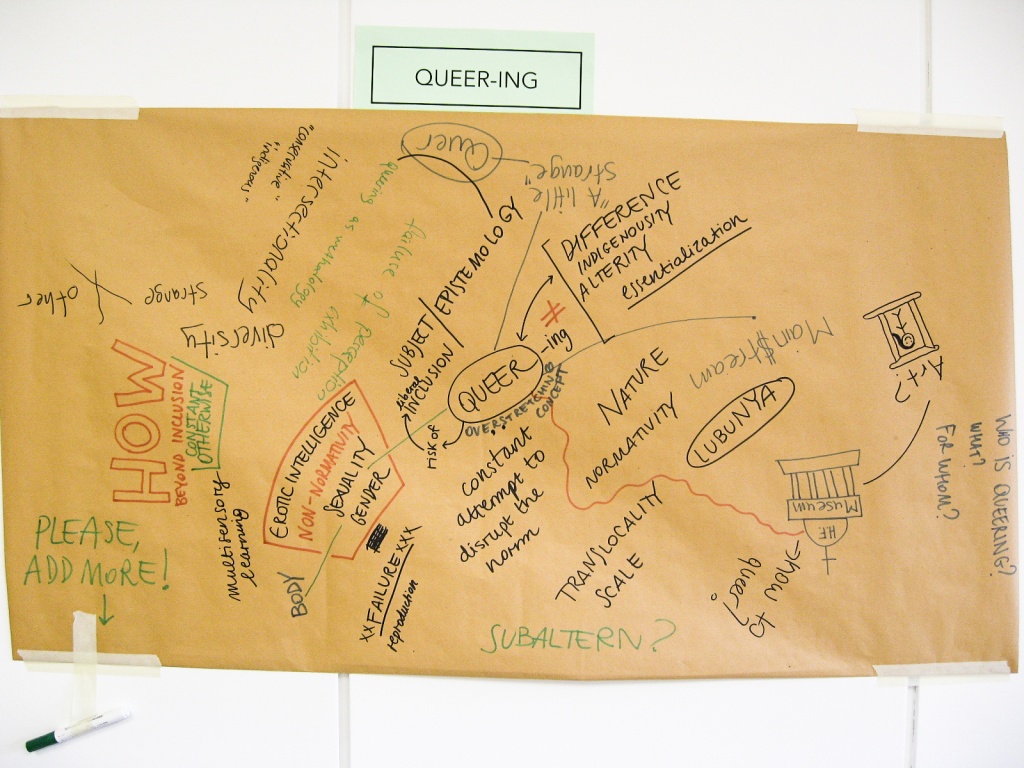 QUEER-ING
Quer
"A little
strange"
"conservative"
"indigenous"
intersectionality
Queering as methodology
exhibition
failure of
perception
diversity
strange
other
SUBJECT/EPISTEMOLOGY
liberal
INCLUSION
risk of
DIFFERENCE
INDIGENOUSITY
ALTERITY
essentialization
≠
QUEER
-ing
OVERSTRETCHING
CONCEPT
constant
attempt to
disrupt the
norm
NATURE
NORMATIVITY
Main$tream
LUBUNYA
TRANSLOCALITY
SCALE
Art?
Museum
H.F.
how to
queer?
WHO IS QUEERING?
WHAT?
FOR WHOM?
HOW
BEYOND INCLUSION
CONSTANT
OTHERWISE
EROTIC INTELLIGENCE
NON-NORMATIVITY
SEXUALITY
GENDER
multisensory
learning
BODY
xx FAILURE xxx
reproduction
SUBALTERN?
PLEASE,
ADD MORE!